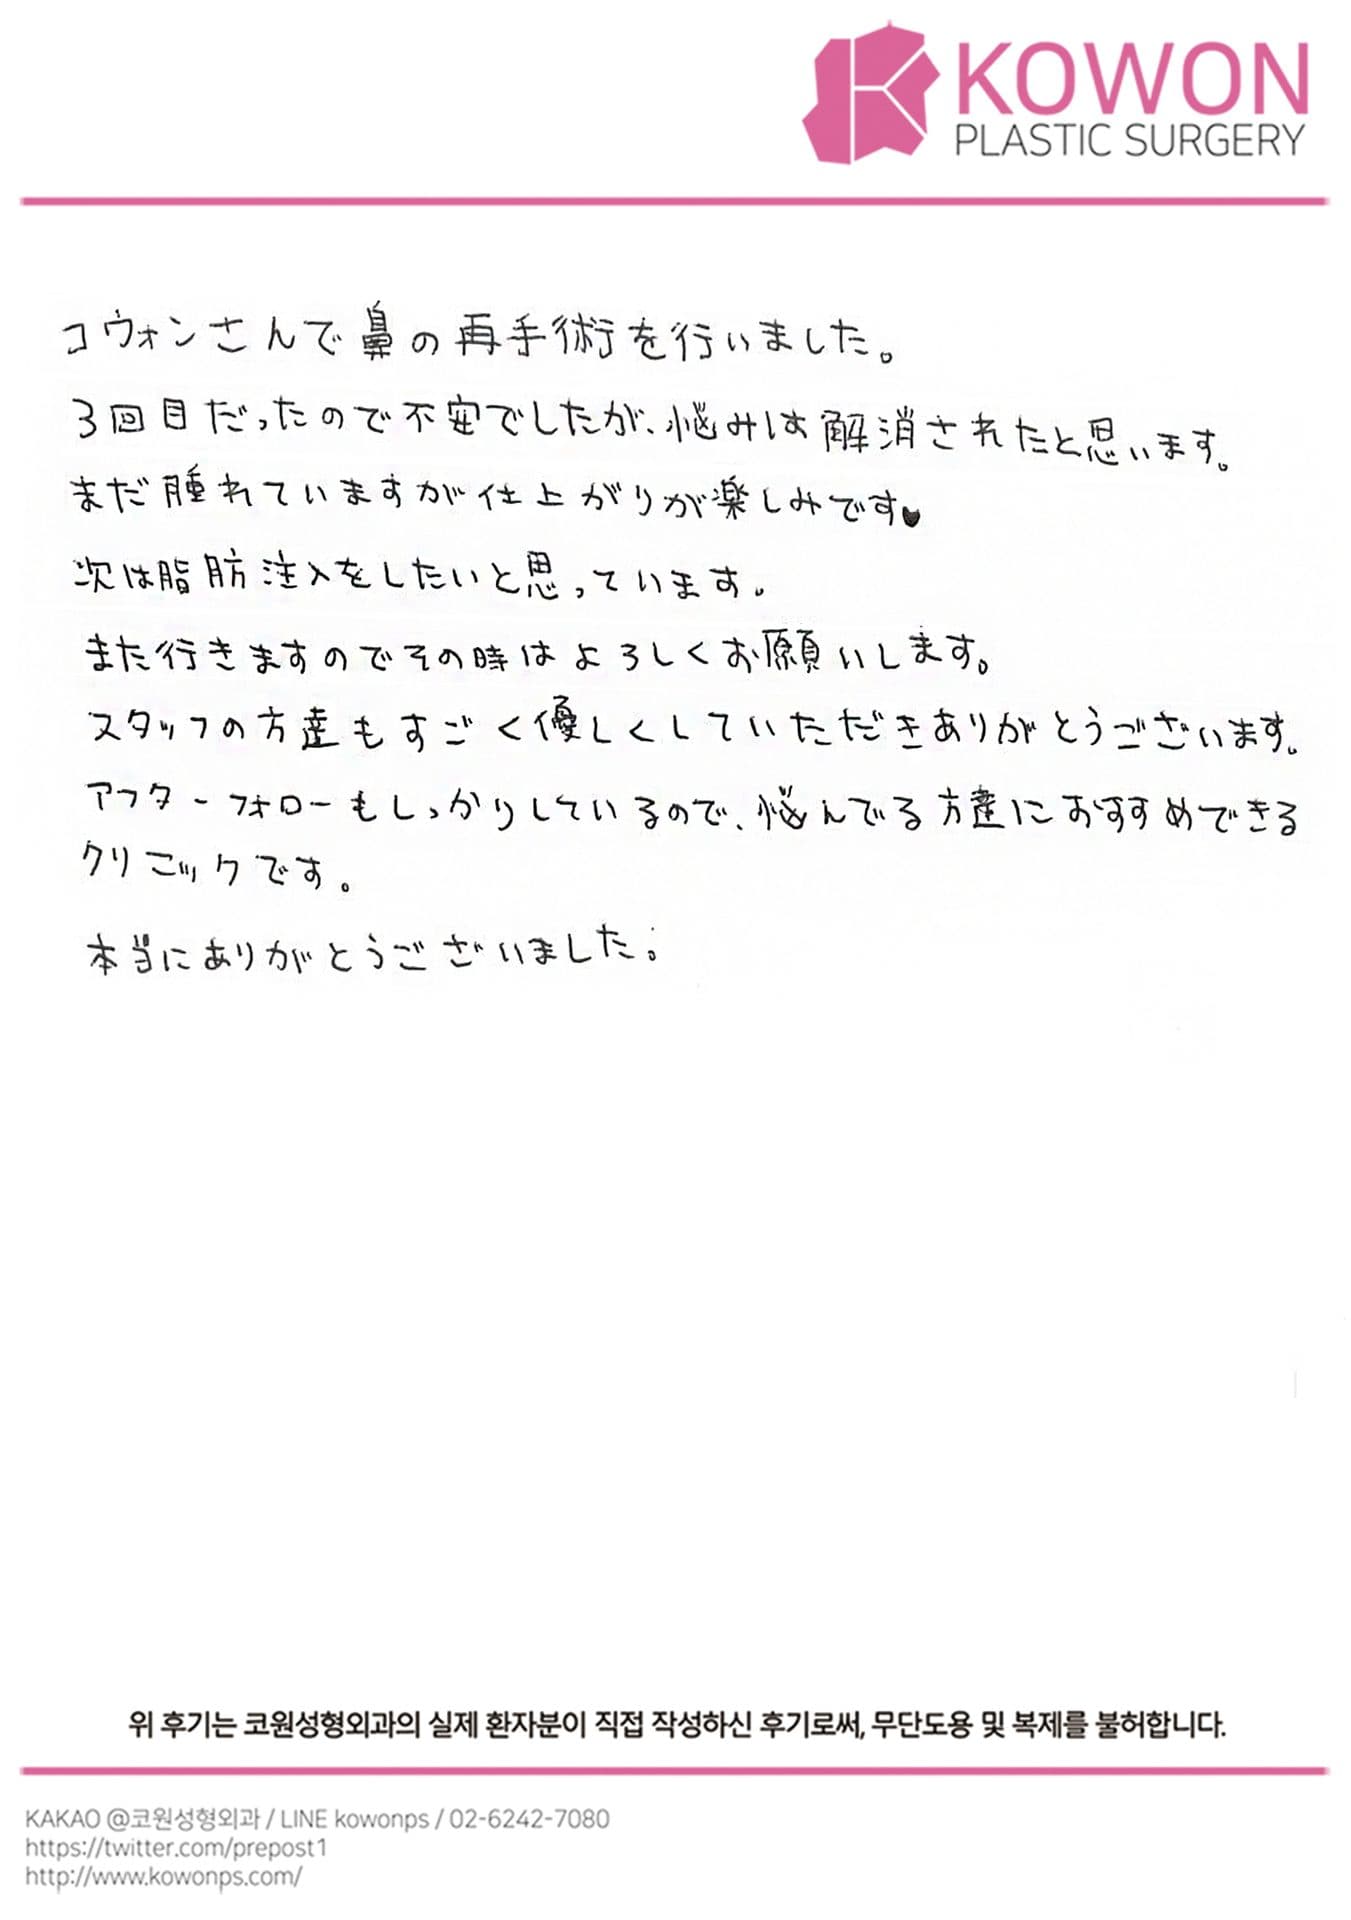 KOWON
PLASTIC SURGERY
コウォンさんで鼻の再手術を行いました。
3回目だったので不安でしたが、悩みは解消されたと思います。
まだ腫れていますが仕上がりが楽しみです♥
次は脂肪注入をしたいと思っています。
また行きますのでその時はよろしくお願いします。
スタッフの方達もすごく優しくしていただきありがとうございます。
アフターフォローもしっかりしているので、悩んでる方達におすすめできる
クリニックです。
本当にありがとうございました。
위 후기는 코원성형외과의 실제 환자분이 직접 작성하신 후기로써, 무단도용 및 복제를 불허합니다.
KAKAO @코원성형외과 / LINE kowonps / 02-6242-7080
https://twitter.com/prepost1
http://www.kowonps.com/